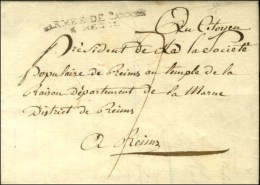 Au Citoyen
Président de la Société
populaire de Reims au temple de la
Raison département de la Marne
District de Reims
A Reims